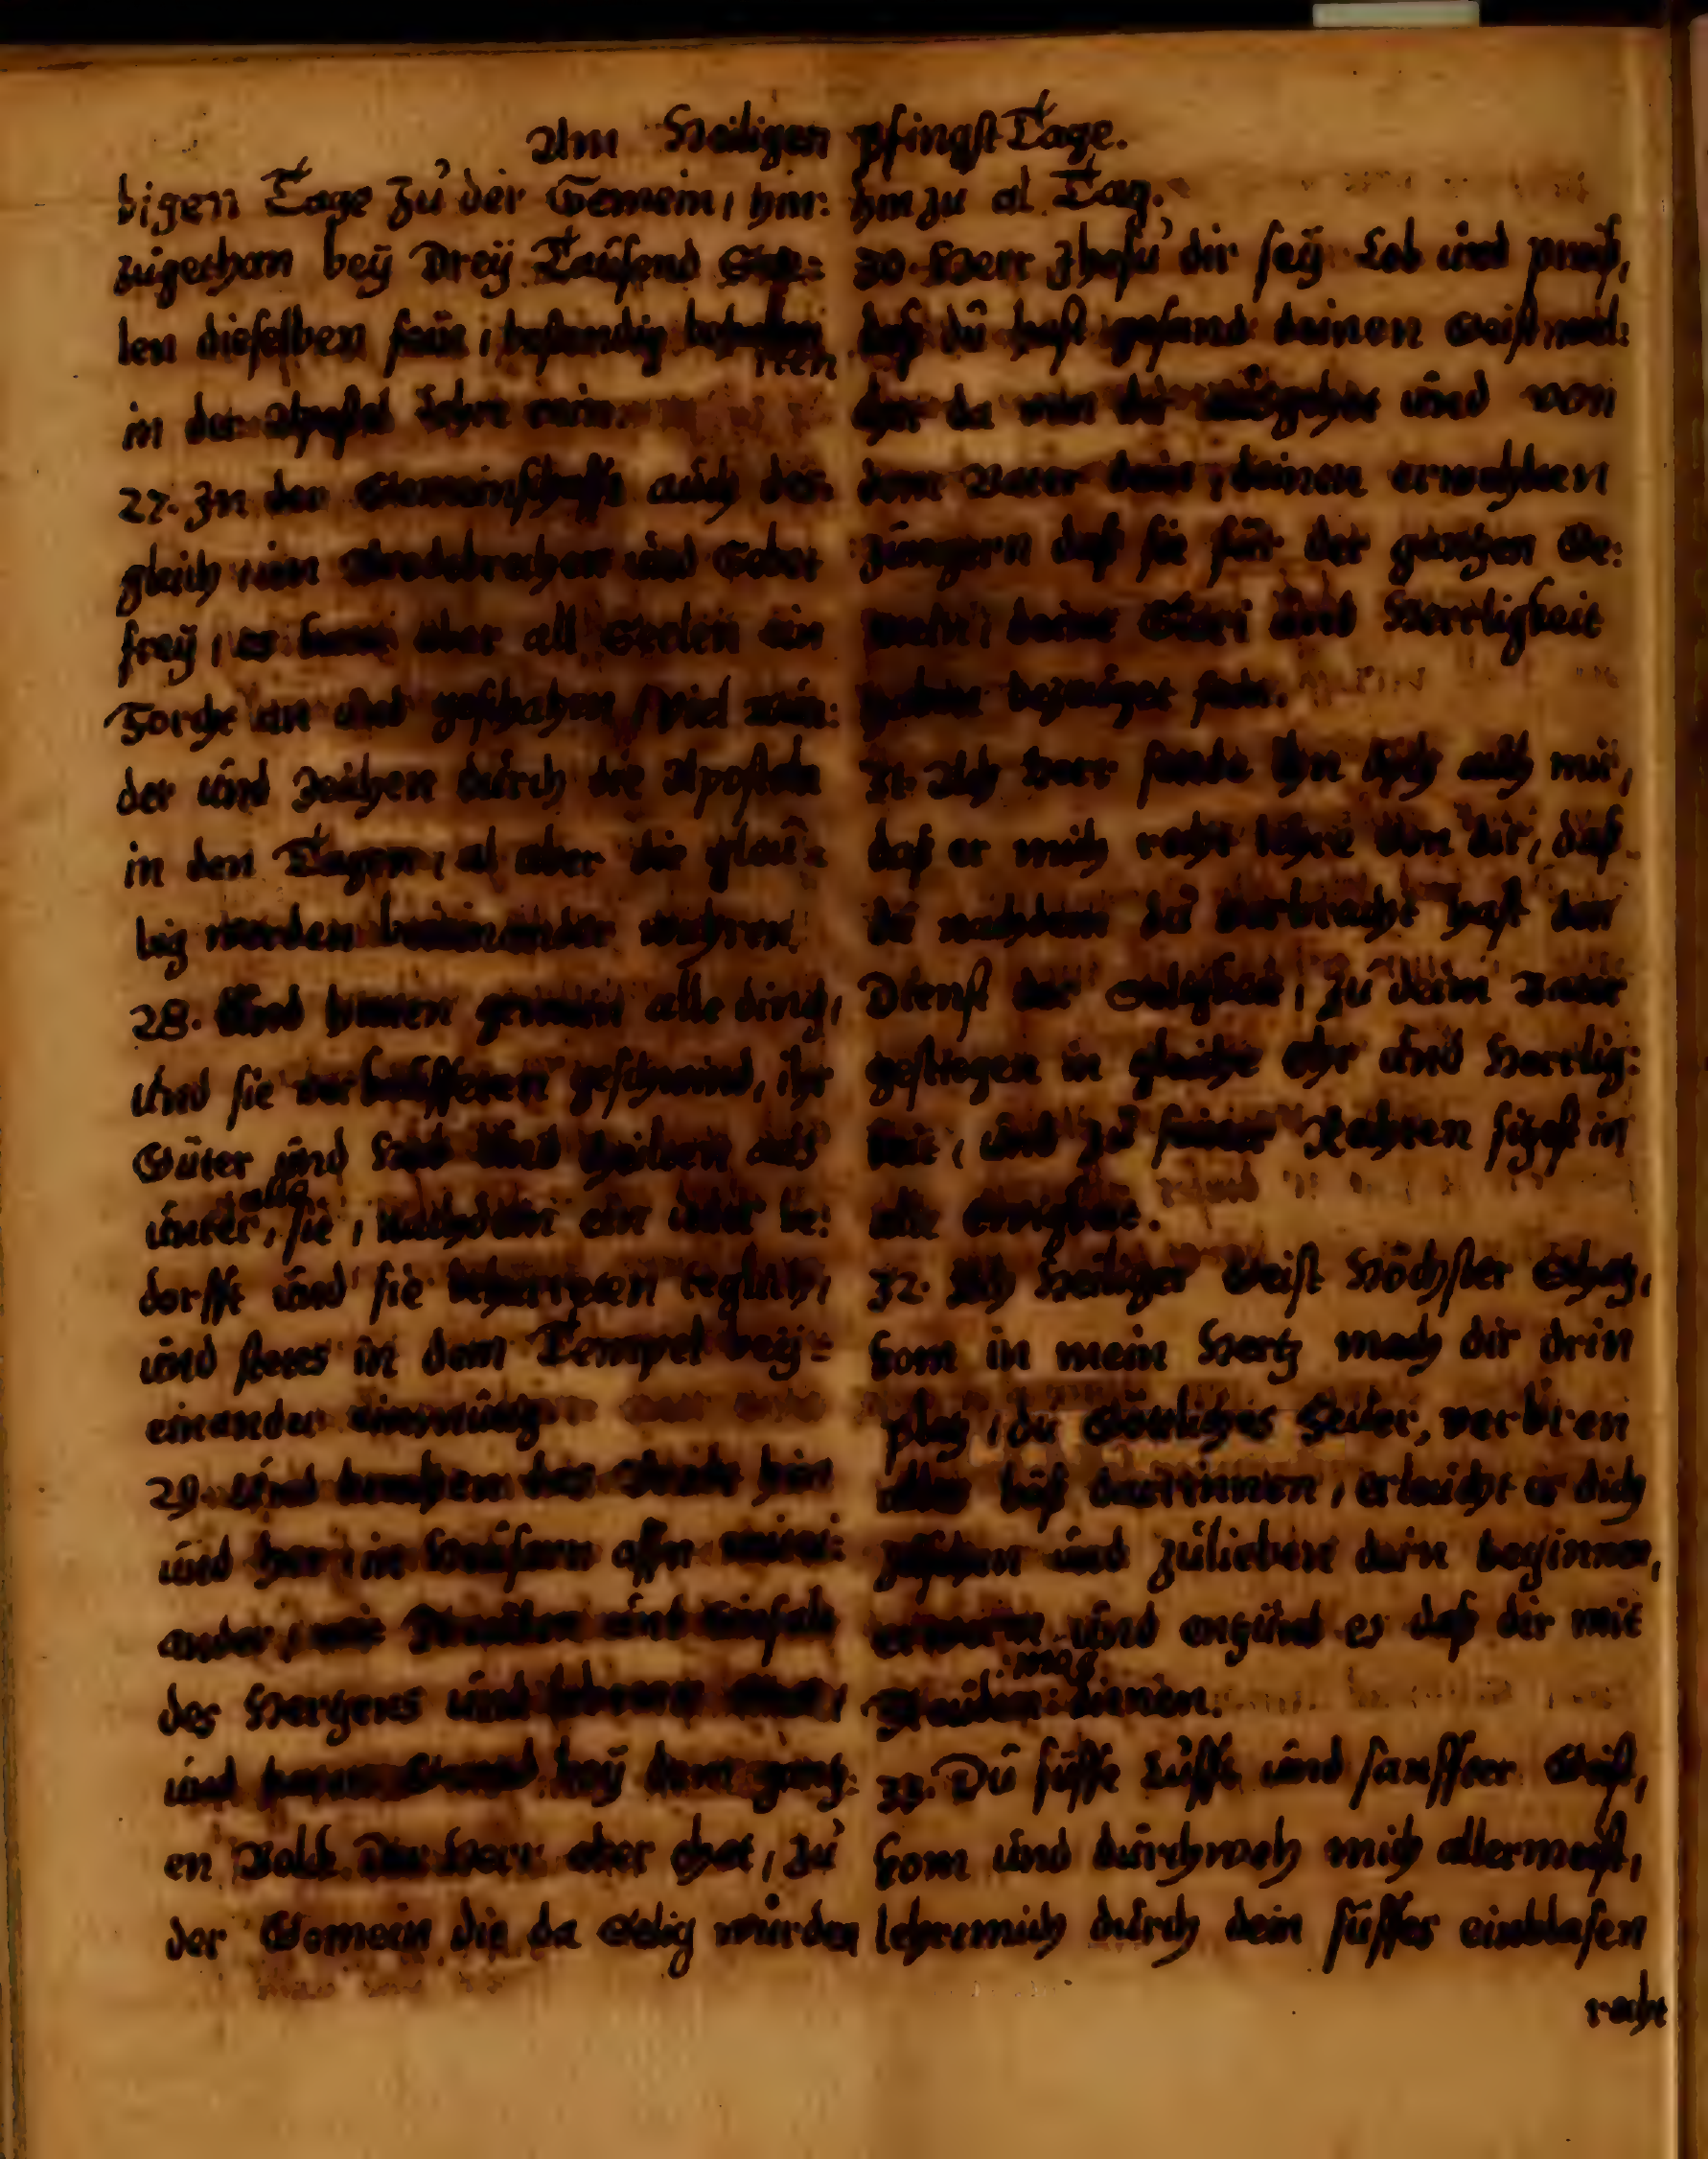 Am Heiligen PfingstTage.
bigen Tage zů der Gemein, hin:
zůgethan beÿ Dreÿ Taůsend See:
len dieselben sein, bestendig
in der Apostel Lehre
27. In der Gemeinschafft aůch des:
gleich, im Brodtbrechen ůnd Gebet
freÿ, es kam aber all Seelen ein
Forcht an ůnd geschahen, Viel wůn:
der ůnd Zeichen důrch die Aposteln
in den Tagen, al aber die glaů=
big worden beÿeinander wahren
28. Und hielten gemein alle ding,
ůnd sie verkaůfften geschwind, ihr
Güter ůnd Hab ůnd theilten aůs
ůnter, alle sie, Nachdem ein ieder be:
dorfft ůnd sie beharreten teglich,
ůnd stets in dem Tempel beÿ=
einander einmütig
29. Und brachen das Brodt hin
ůnd her, in Heůsern assen mitei:
ander, mit Freůden ůnd Einfalt
des Hertzens ůnd lobeten Gott,
ůnd hatten Gnad beÿ dem gantz:
en Volck Der Herr aber thet, zů
der Gemein die da Selig wůrden
hinzu al Tag.
30. Herr Jhesů dir seÿ Lob ůnd preiß,
daß dů hast gesand deinen Geist nied:
der da von dir aůsgehet ůnd von
dem Vater dein, deinen erwehlten
Jüngern daß sie für der gantzen We:
deine Ehr ůnd Herrligkeit
bezeůget
31. Ach Herr sende Ihn doch aůch mir,
daß er mich recht lehre von dir, daß
dů nachdem dů verbracht hast den
Dienst der Seligkeit, zů deim Vater
gestiegen in gleiche Ehr ůnd Herrlig:
keit, ůnd zů seiner Rechten sitzest in
alle Ewigkeit.
32. Ach Heiliger Geist Höchster Schatz,
kom in mein Hertz mach dir drin
platz, dů Göttliches Feůer, verbren
alles böß darinnen, erleůcht er dich
zůsehen ůnd zůlieben darin beginnen,
erwerm ůnd entzünd es daß dir mit
Freůden mag dienen.
33. Dů süsse Lůfft ůnd sanffter Geist,
kom ůnd důrchweh mich allermeist,
lehre mich důrch dein süsses einblasen
recht